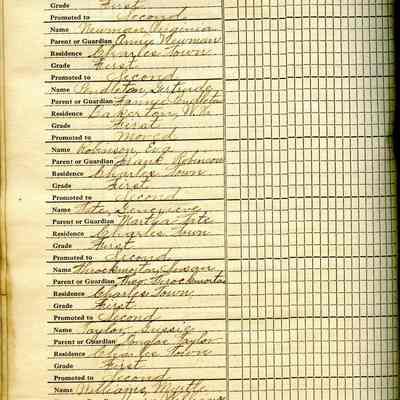 Grade First
Promoted to Second
Name Newman, Virginia
Parent or Guardian Annie Newman
Residence Charles Town
Grade First
Promoted to Second
Name Pendleton, Gertrude
Parent or Guardian Fannie Pendleton
Residence Bakerton, W. Va
Grade First
Promoted to Moved
Name Robinson, Eva
Parent or Guardian Frank Robinson
Residence Charles Town
Grade First
Promoted to Second
Name Tate, Genevieve
Parent or Guardian Martha Tate
Residence Charles Town
Grade First
Promoted to Second
Name Throckmorton, Susan
Parent or Guardian Throckmorton
Residence Charles Town
Grade First
Promoted to Second
Name Taylor, Sussie
Parent or Guardian Douglas Taylor
Residence Charles Town
Grade First
Promoted to Second
Name Williams, Myrtle